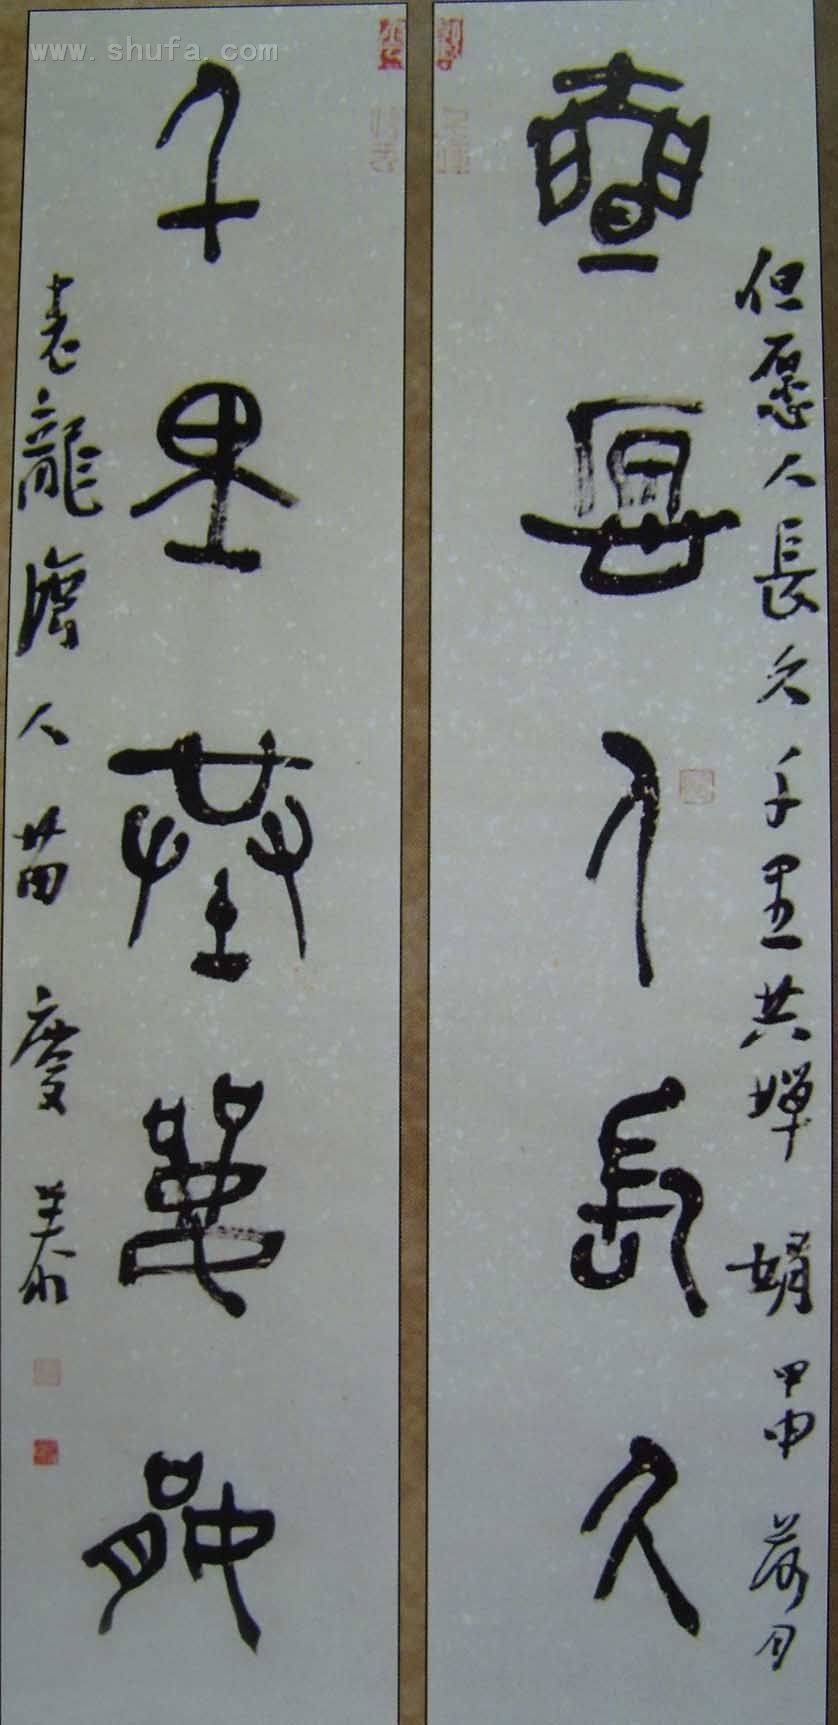 www.shufa.com
但愿人長久千里共嬋娟 甲申荷月
但愿人長久
千里共嬋娟
老龍灣人苗慶泰